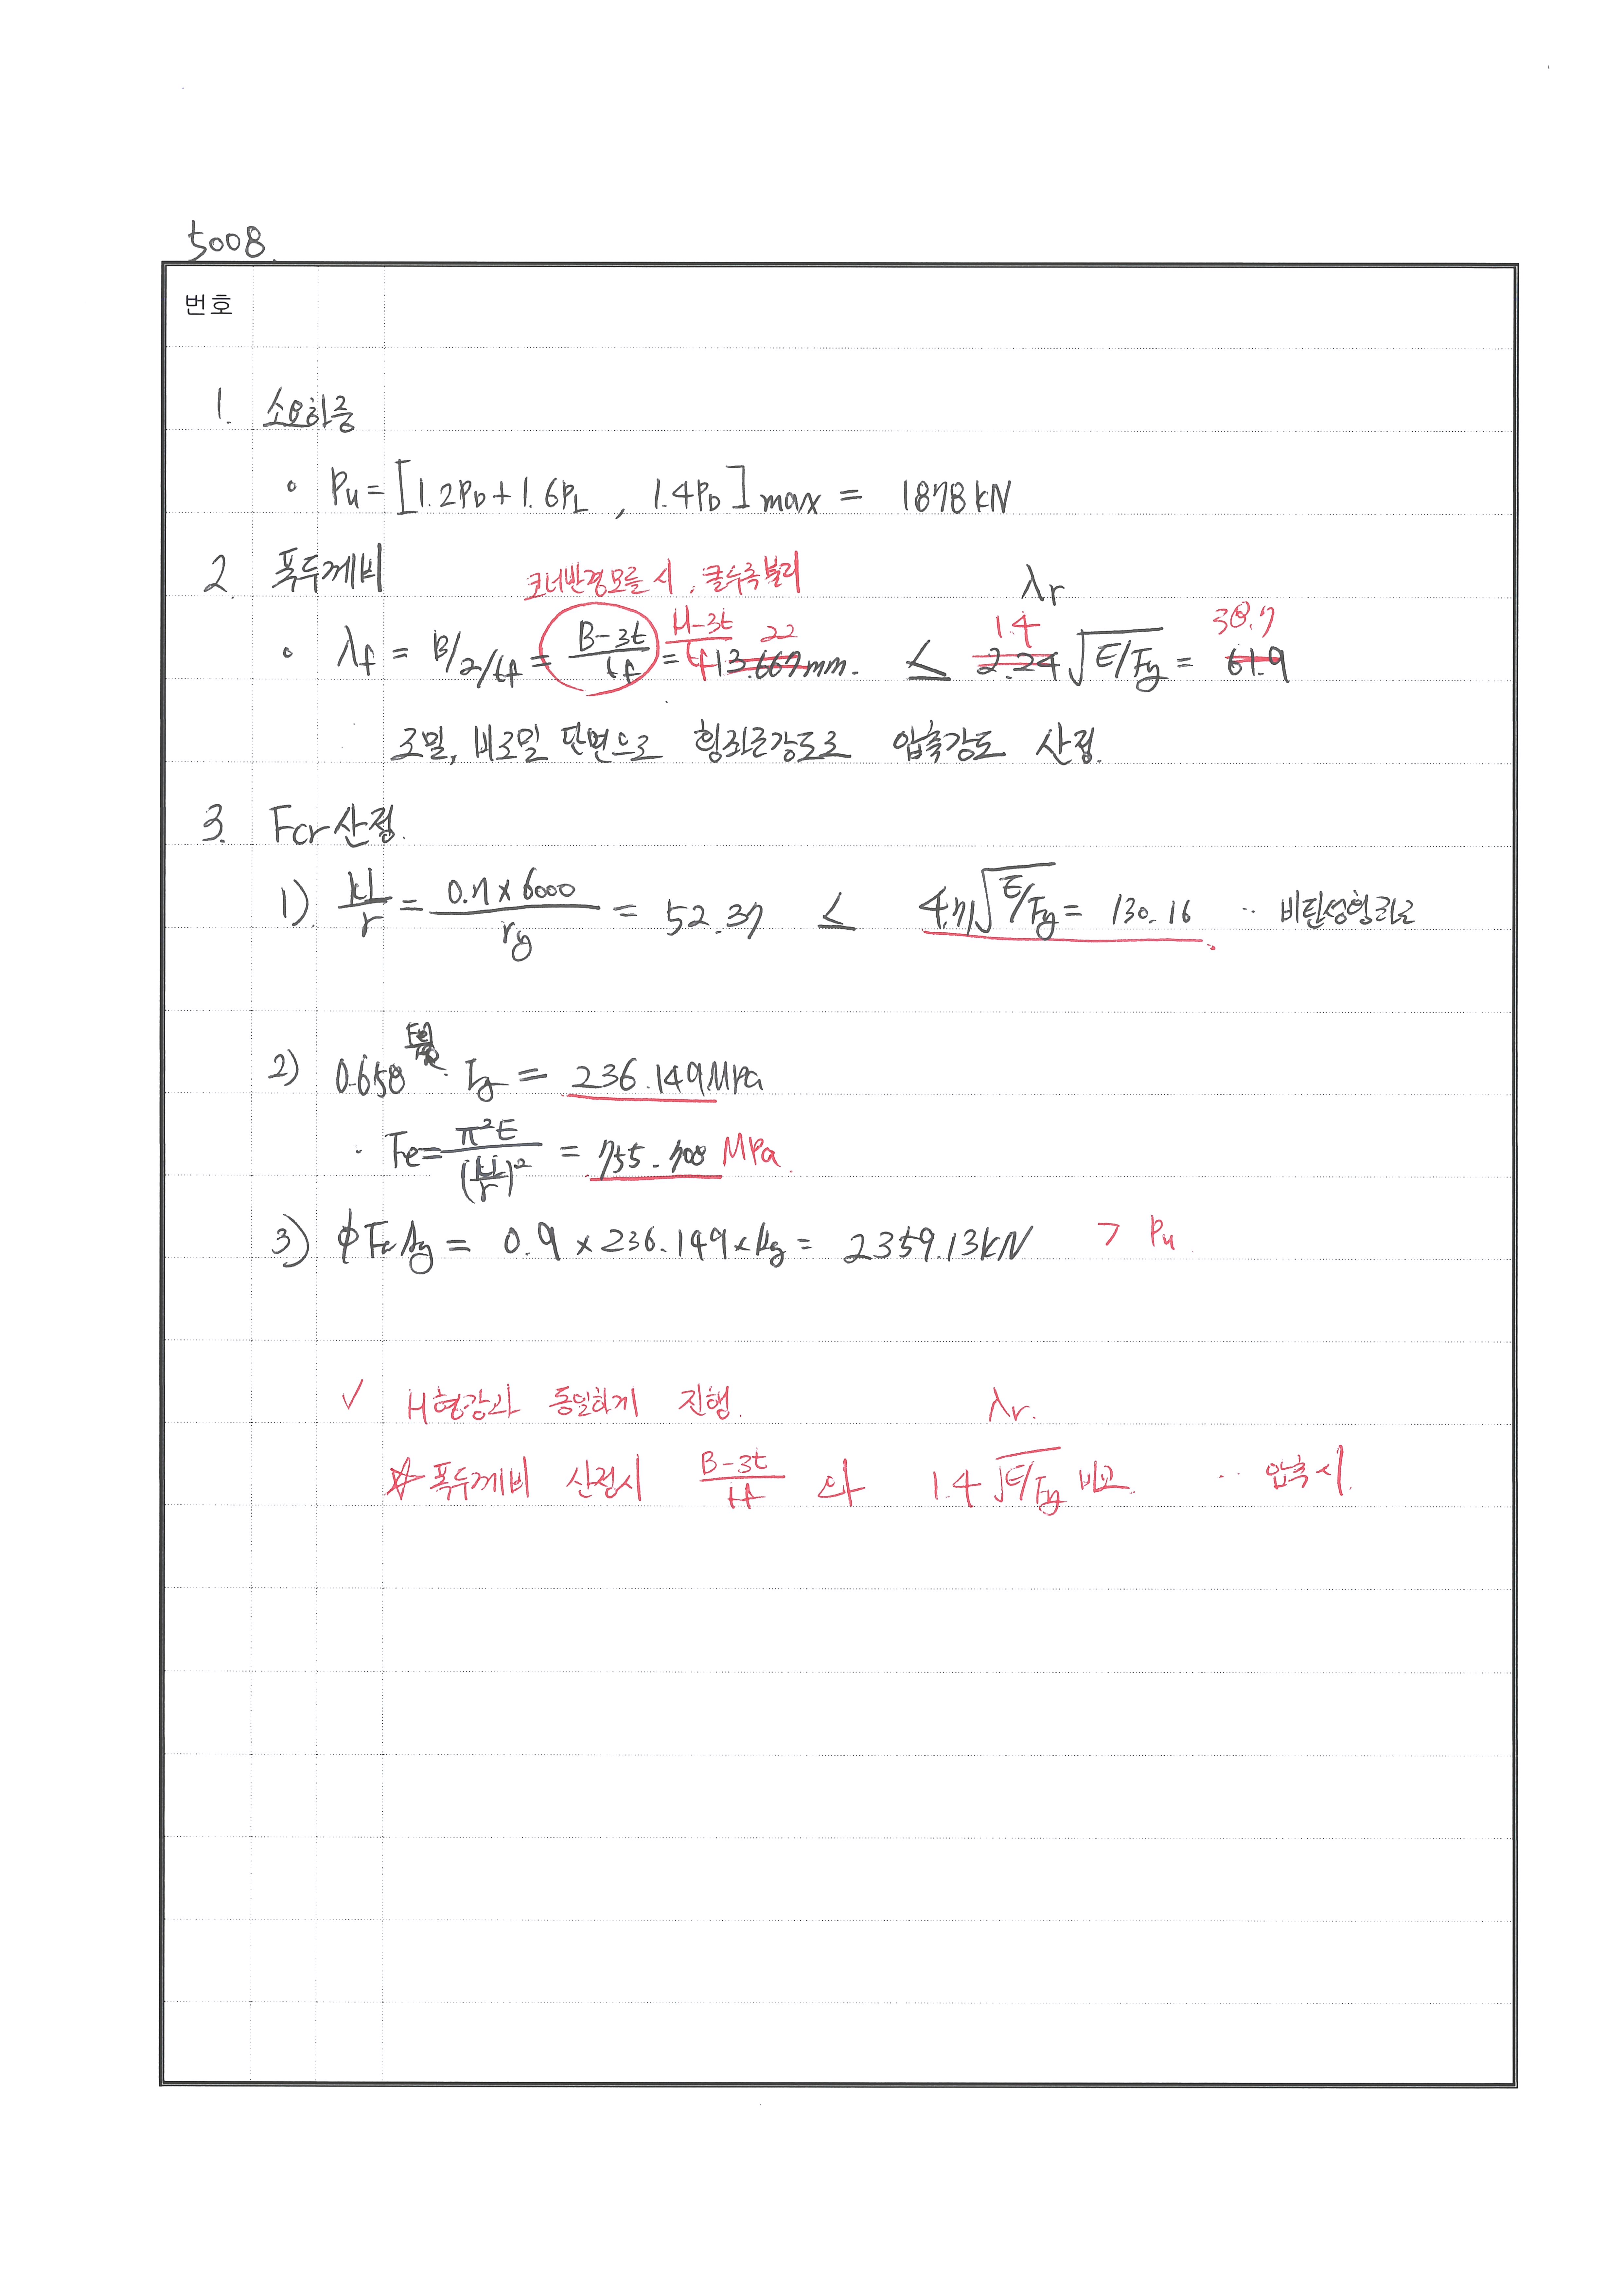 5008.
번호
1. 소요하중
∘ Pu = [1.2PD + 1.6PL , 1.4PD] max = 1878 kN
2. 폭두께비
코너반경모를 시, 클수록 불리
λr
∘ λf = B/2/tf = (B-3t)/tf = (H-3t)/tf 22 13.667mm. ≤ 1.4 2.24 √(E/Fy) = 38.7 61.9
조밀, 비조밀 단면으로 휨좌굴강도로 압축강도 산정.
3. Fcr 산정.
1) kL/r = (0.7 × 6000)/ry = 52.37 ≤ 4.71√(E/Fy) = 130.16 ∴ 비탄성형좌굴
2) 0.658 Fy = 236.149 MPa
· Fe = π²E/(kL/r)² = 755.708 MPa.
3) ϕ Fcr Ag = 0.9 × 236.149 × Ag = 2359.13 kN > Pu
✓ H형강과 동일하게 진행.
λr.
☆ 폭두께비 산정시 (B-3t)/tf 와 1.4 √(E/Fy) 비교. ·· 압축시.